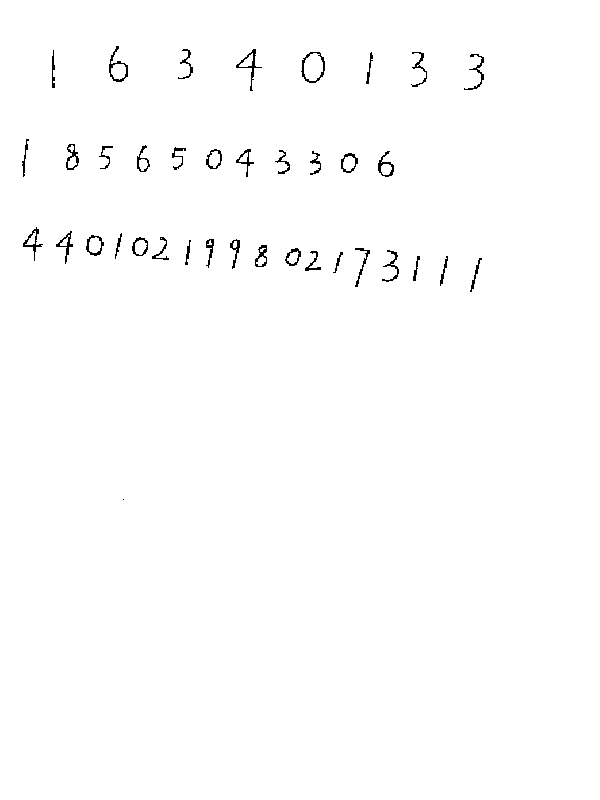 1 6 3 4 0 1 3 3
1 8 5 6 5 0 4 3 3 0 6
440102199802173111